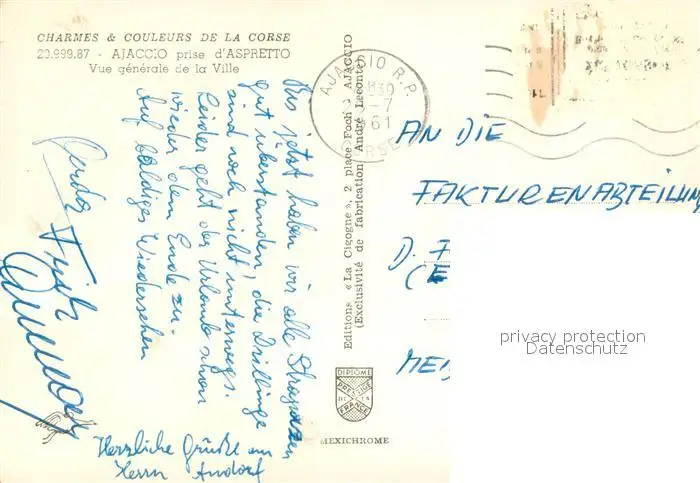 CHARMES & COULEURS DE LA CORSE
20.999.87 - AJACCIO prise d'ASPRETTO
Vue générale de la Ville
Bis jetzt haben wir alle Strapazen
gut überstanden, die Drillinge
sind noch nicht unterwegs.
Leider geht der Urlaub schon
wieder dem Ende zu.
Auf baldiges Wiedersehen
Gerda
Herzliche Grüße an
Herrn Andorf
Editions « La Cigogne », 2 place Foch - AJACCIO
(Exclusivité de fabrication André Leconte)
AJACCIO R.P.
-7
61
CORSE
DIPLOME
PRESTIGE
DE LA
FRANCE
MEXICHROME
AN DIE
FAKTURENABTEILUNG
D. F
(E
MEI
privacy protection
Datenschutz